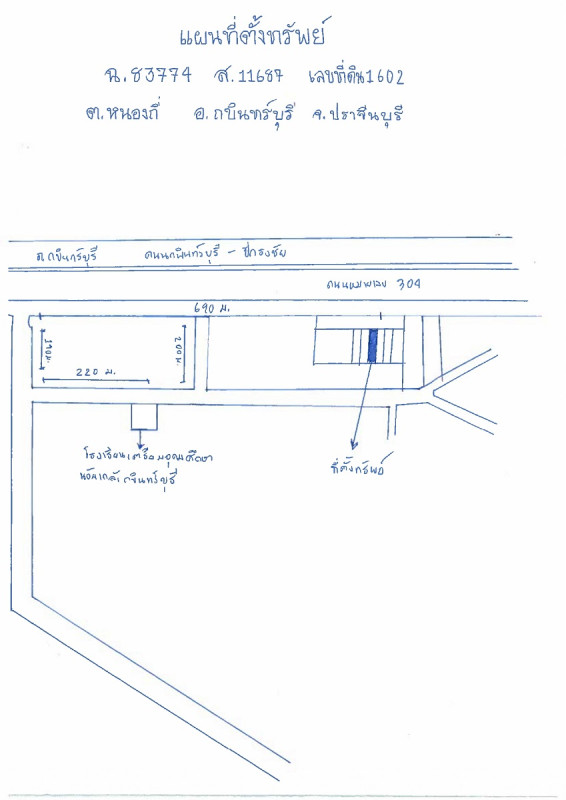 แผนที่ตั้งทรัพย์
ฉ.83774 ส.11687 เลขที่ดิน1602
ต.หนองกี่ อ.กบินทร์บุรี จ.ปราจีนบุรี
อ.กบินทร์บุรี ถนนกบินทร์บุรี - ปักธงชัย
ถนนหมายเลข 304
690 ม.
190ม.
200ม.
220 ม.
โรงเรียนเตรียมอุดมศึกษา
น้อมเกล้า กบินทร์บุรี
ที่ตั้งทรัพย์